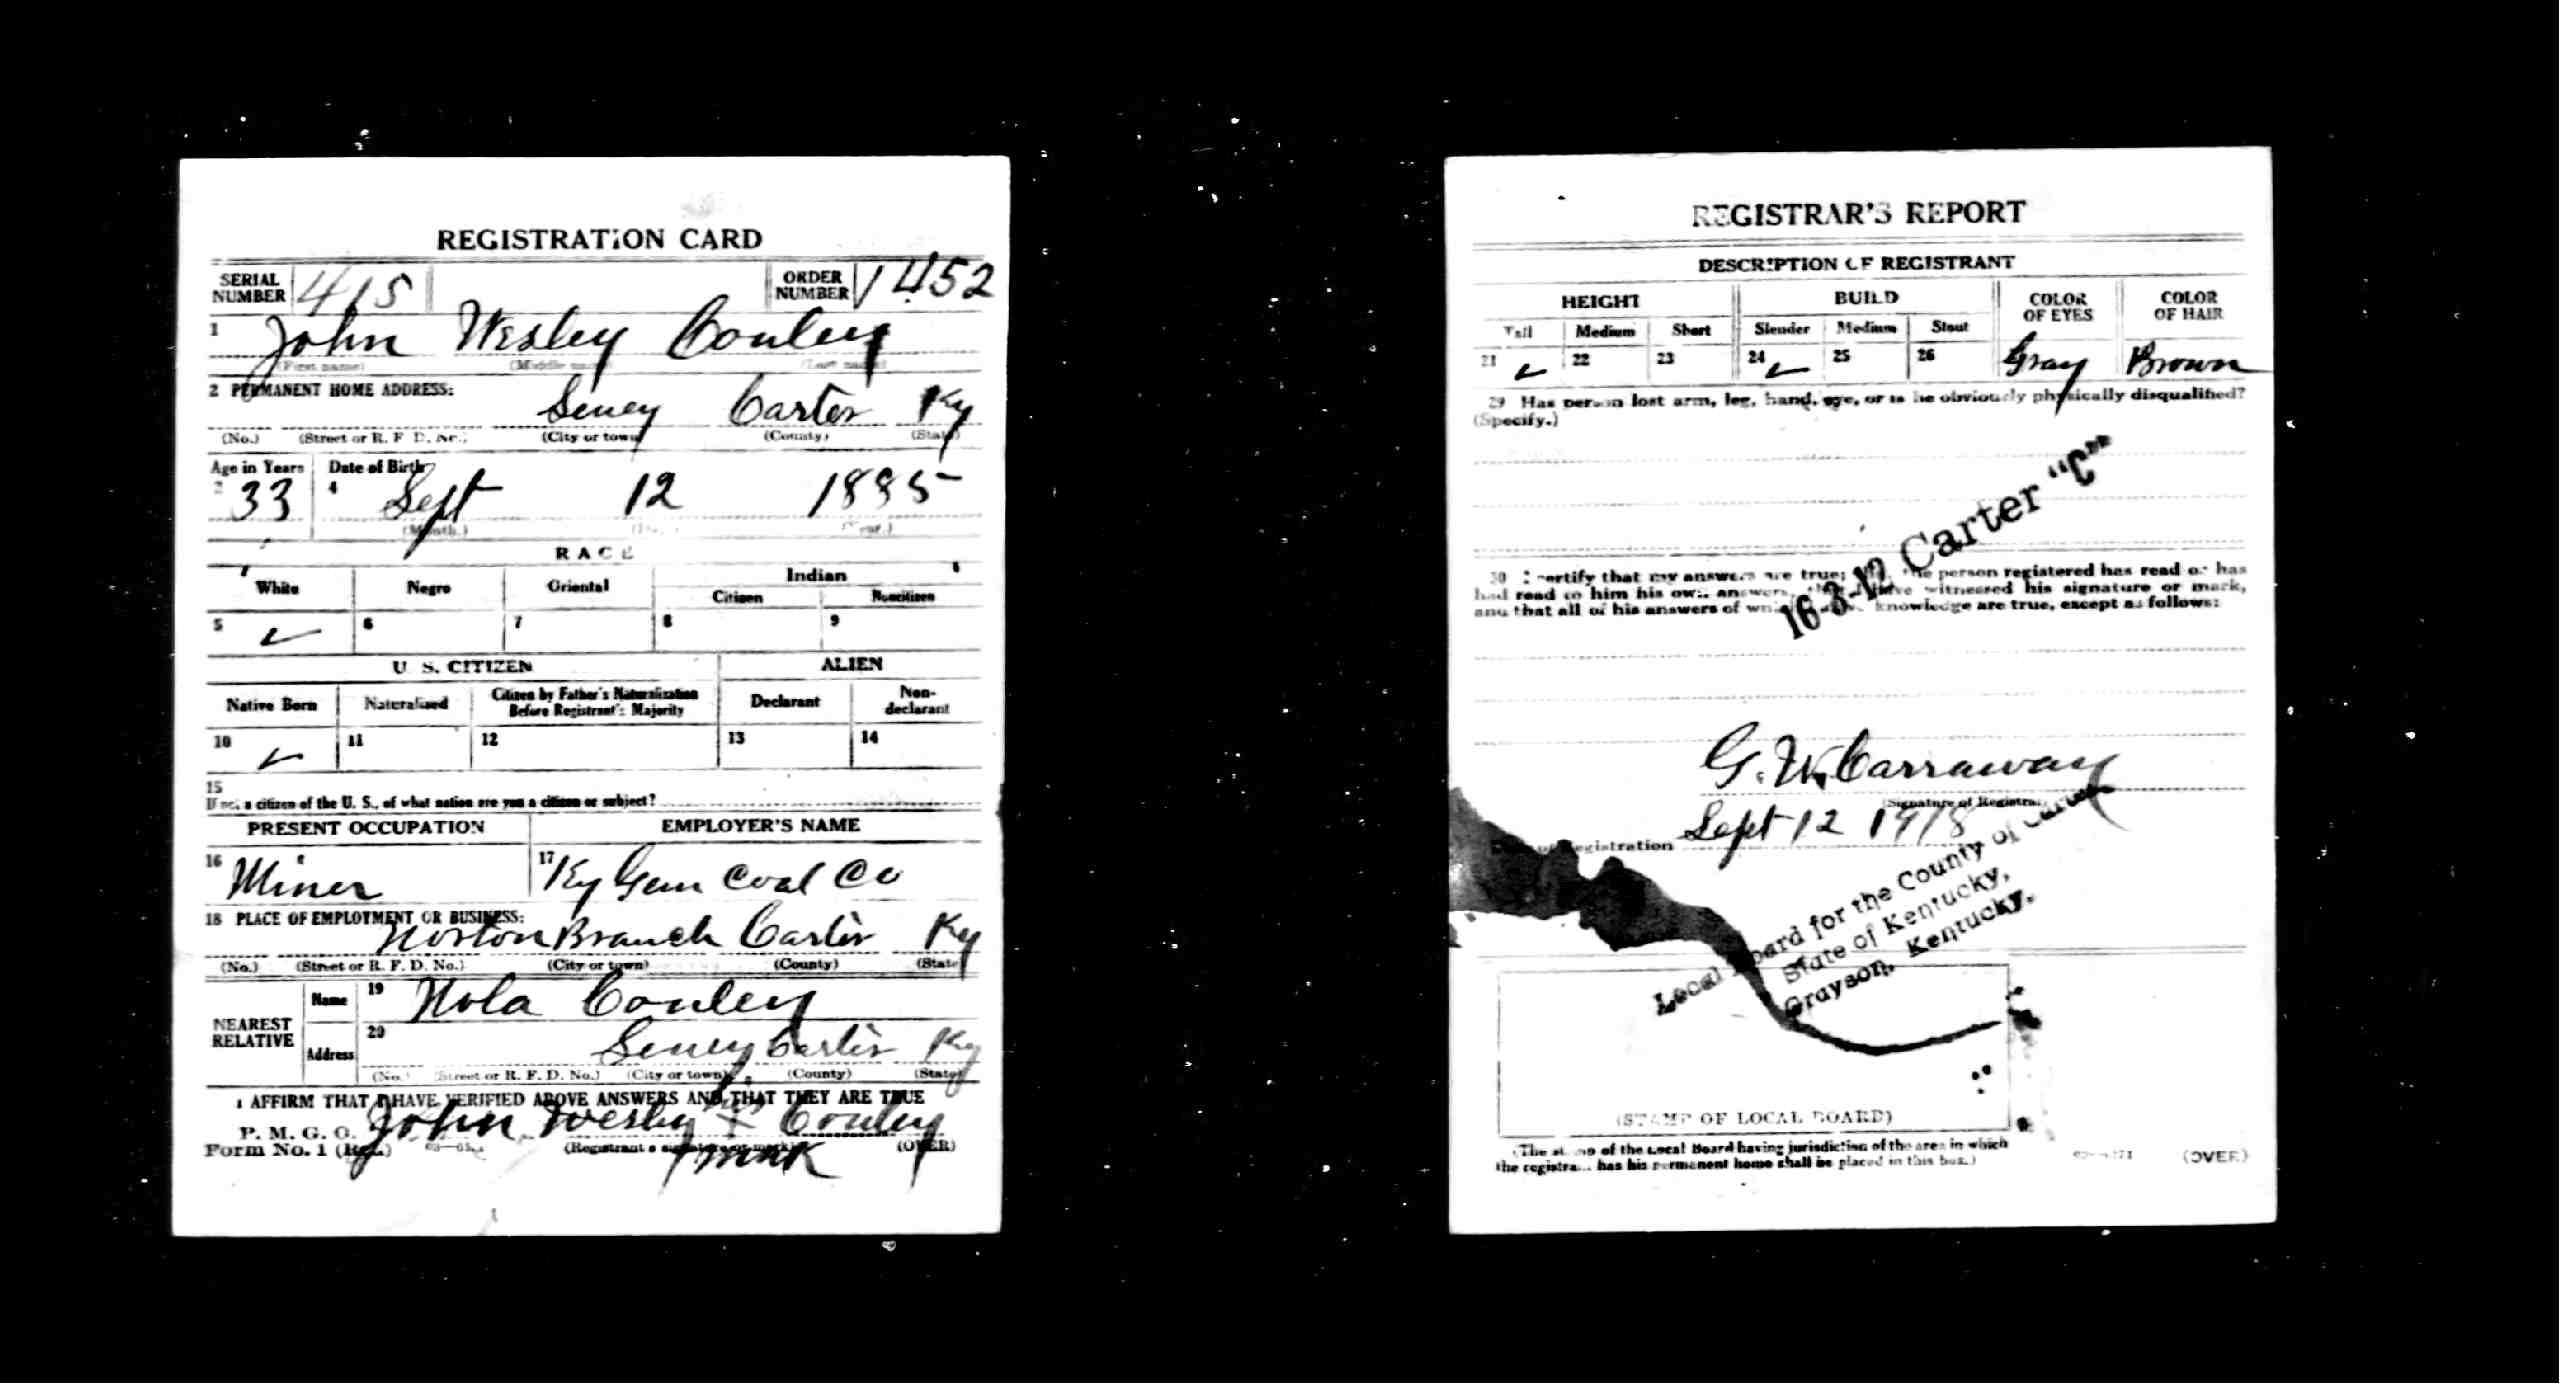 REGISTRATION CARD
SERIAL NUMBER 415 ORDER NUMBER 1452
1 John Wesley Conley
(First name) (Middle name) (Last name)
2 PERMANENT HOME ADDRESS:
Seney Carter Ky
(No.) (Street or R. F. D. No.) (City or town) (County) (State)
Age in Years Date of Birth
3 33 4 Sept 12 1885
(Month.) (Day.) (Year.)
RACE
White Negro Oriental Indian
Citizen Noncitizen
5 ✓ 6 7 8 9
U. S. CITIZEN ALIEN
Native Born Naturalized Citizen by Father's Naturalization Before Registrant's Majority Declarant Non-declarant
10 ✓ 11 12 13 14
15
If not a citizen of the U. S., of what nation are you a citizen or subject?
PRESENT OCCUPATION EMPLOYER'S NAME
16 Miner 17 Ky Gem Coal Co
18 PLACE OF EMPLOYMENT OR BUSINESS:
Norton Branch Carter Ky
(No.) (Street or R. F. D. No.) (City or town) (County) (State)
NEAREST RELATIVE
Name 19 Nola Conley
Address 20 Seney Carter Ky
(No.) (Street or R. F. D. No.) (City or town) (County) (State)
I AFFIRM THAT I HAVE VERIFIED ABOVE ANSWERS AND THAT THEY ARE TRUE
P. M. G. O.
Form No. 1 (Red)
John Wesley his X Conley
(Registrant's signature or mark) (OVER)
mark
REGISTRAR'S REPORT
DESCRIPTION OF REGISTRANT
HEIGHT BUILD COLOR OF EYES COLOR OF HAIR
Tall Medium Short Slender Medium Stout
21 ✓ 22 23 24 ✓ 25 26 Gray Brown
29 Has person lost arm, leg, hand, eye, or is he obviously physically disqualified?
(Specify.)
16-3-12 Carter "C"
30 I certify that my answers are true; the person registered has read or has
had read to him his own answers, that I have witnessed his signature or mark,
and that all of his answers of which I have knowledge are true, except as follows:
G. W. Carraway
(Signature of Registrar)
Date of Registration Sept 12 1918
Local Board for the County of Carter
State of Kentucky,
Grayson, Kentucky.
(STAMP OF LOCAL BOARD)
(The stamp of the Local Board having jurisdiction of the area in which
the registrant has his permanent home shall be placed in this box.)
(OVER)